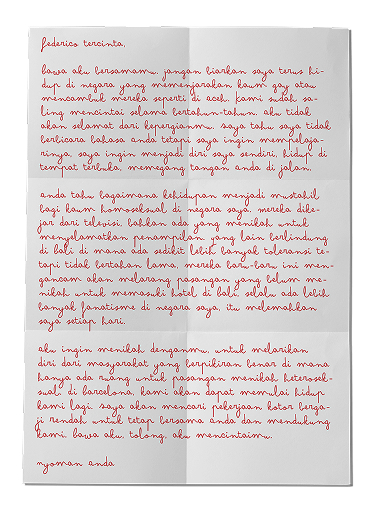 federico tercinta,
bawa aku bersamamu. jangan biarkan saya terus hi-
dup di negara yang memenjarakan kaum gay atau
mencambuk mereka seperti di aceh. kami sudah sa-
ling mencintai selama bertahun-tahun. aku tidak
akan selamat dari kepergianmu. saya tahu saya tidak
berbicara bahasa anda tetapi saya ingin mempelaja-
rinya, saya ingin menjadi diri saya sendiri, hidup di
tempat terbuka, memegang tangan anda di jalan.
anda tahu bagaimana kehidupan menjadi mustahil
bagi kaum homoseksual di negara saya. mereka dike-
jar dari televisi, bahkan ada yang menikah untuk
menyelamatkan penampilan. yang lain berlindung
di bali di mana ada sedikit lebih banyak toleransi te-
tapi tidak bertahan lama, mereka baru-baru ini men-
gancam akan melarang pasangan yang belum me-
nikah untuk memasuki hotel di bali, selalu ada lebih
banyak fanatisme di negara saya, itu melemahkan
saya setiap hari.
aku ingin menikah denganmu, untuk melarikan
diri dari masyarakat yang berpikiran benar di mana
hanya ada ruang untuk pasangan menikah heterosek-
sual. di barcelona, kami akan dapat memulai hidup
kami lagi. saya akan mencari pekerjaan kotor berga-
ji rendah untuk tetap bersama anda dan mendukung
kami. bawa aku, tolong, aku mencintaimu.
nyoman anda